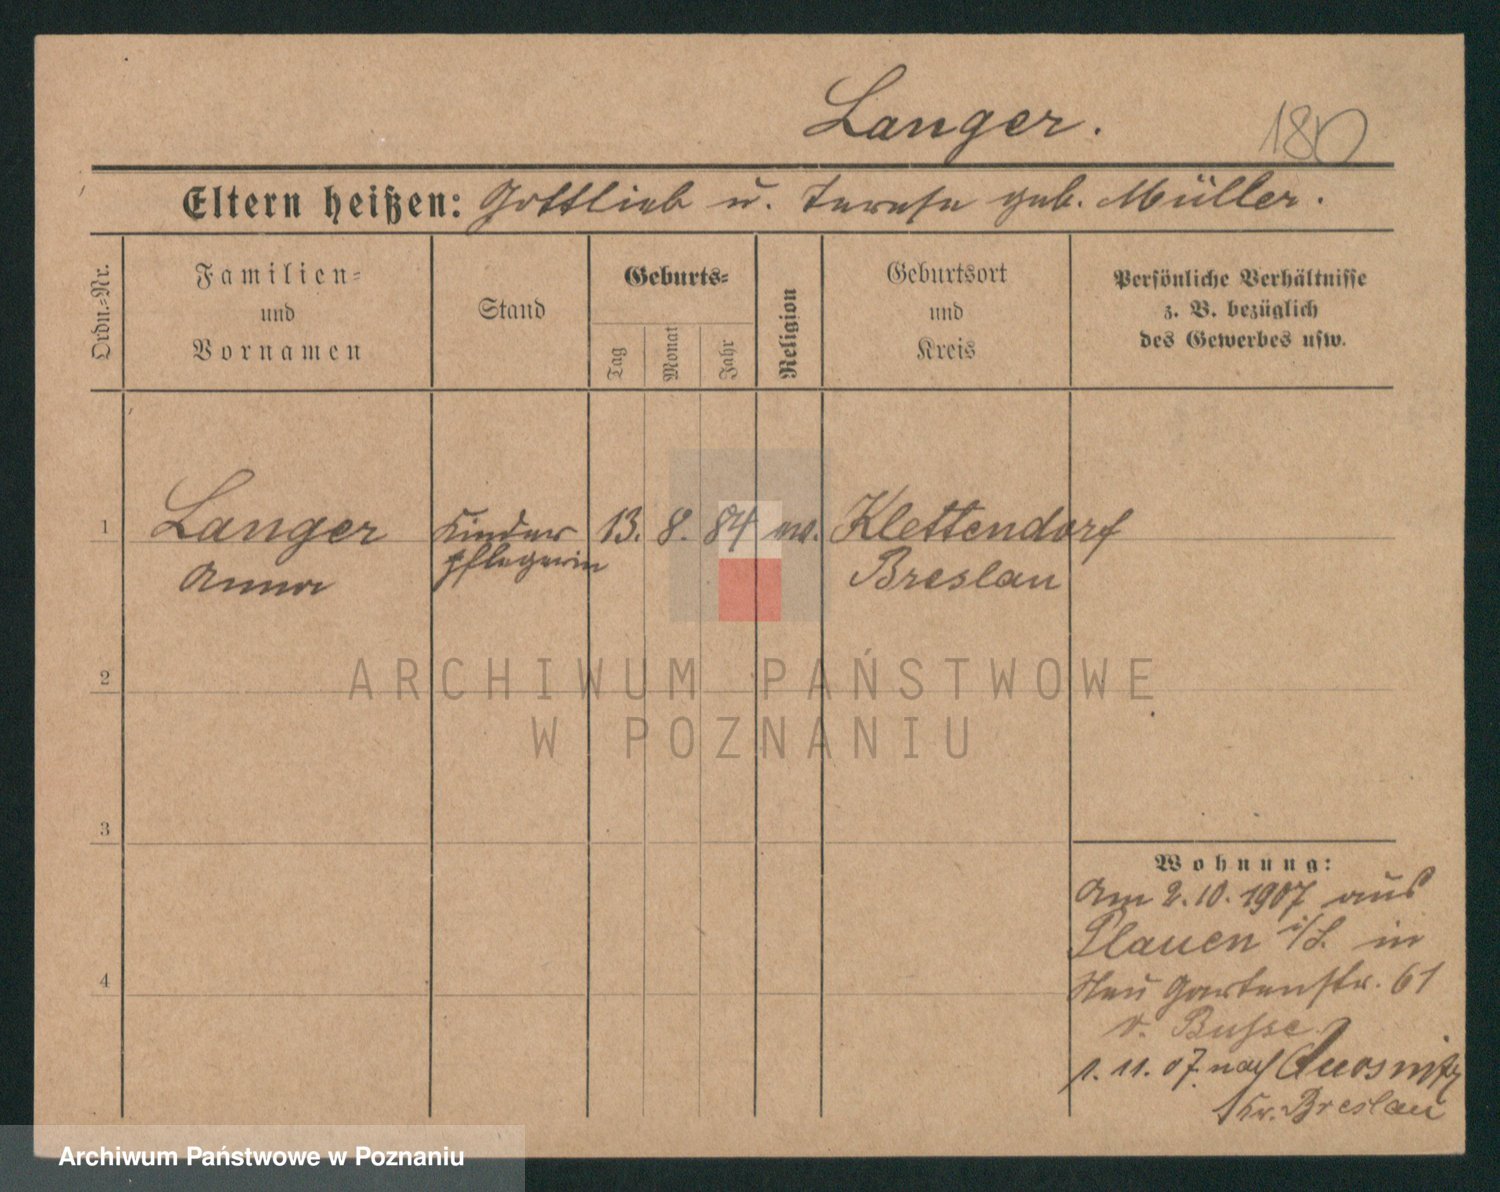 Langer.
180
Eltern heißen: Gottlieb u. Terese geb. Müller.
Ordn.-Nr.
Familien-
und
Vornamen
Stand
Geburts-
Tag
Monat
Jahr
Religion
Geburtsort
und
Kreis
Persönliche Verhältnisse
z. B. bezüglich
des Gewerbes usw.
1
Langer
Anna
Kinder
pflegerin
13. 8. 84 ev.
Klettendorf
Breslau
2
3
4
Wohnung:
Am 2.10.1907 aus
Plauen i/S. in
Neu Gartenstr. 61
v. Busse
1. 11. 07. nach
Kr. Breslau
ARCHIWUM PAŃSTWOWE
W POZNANIU
Archiwum Państwowe w Poznaniu